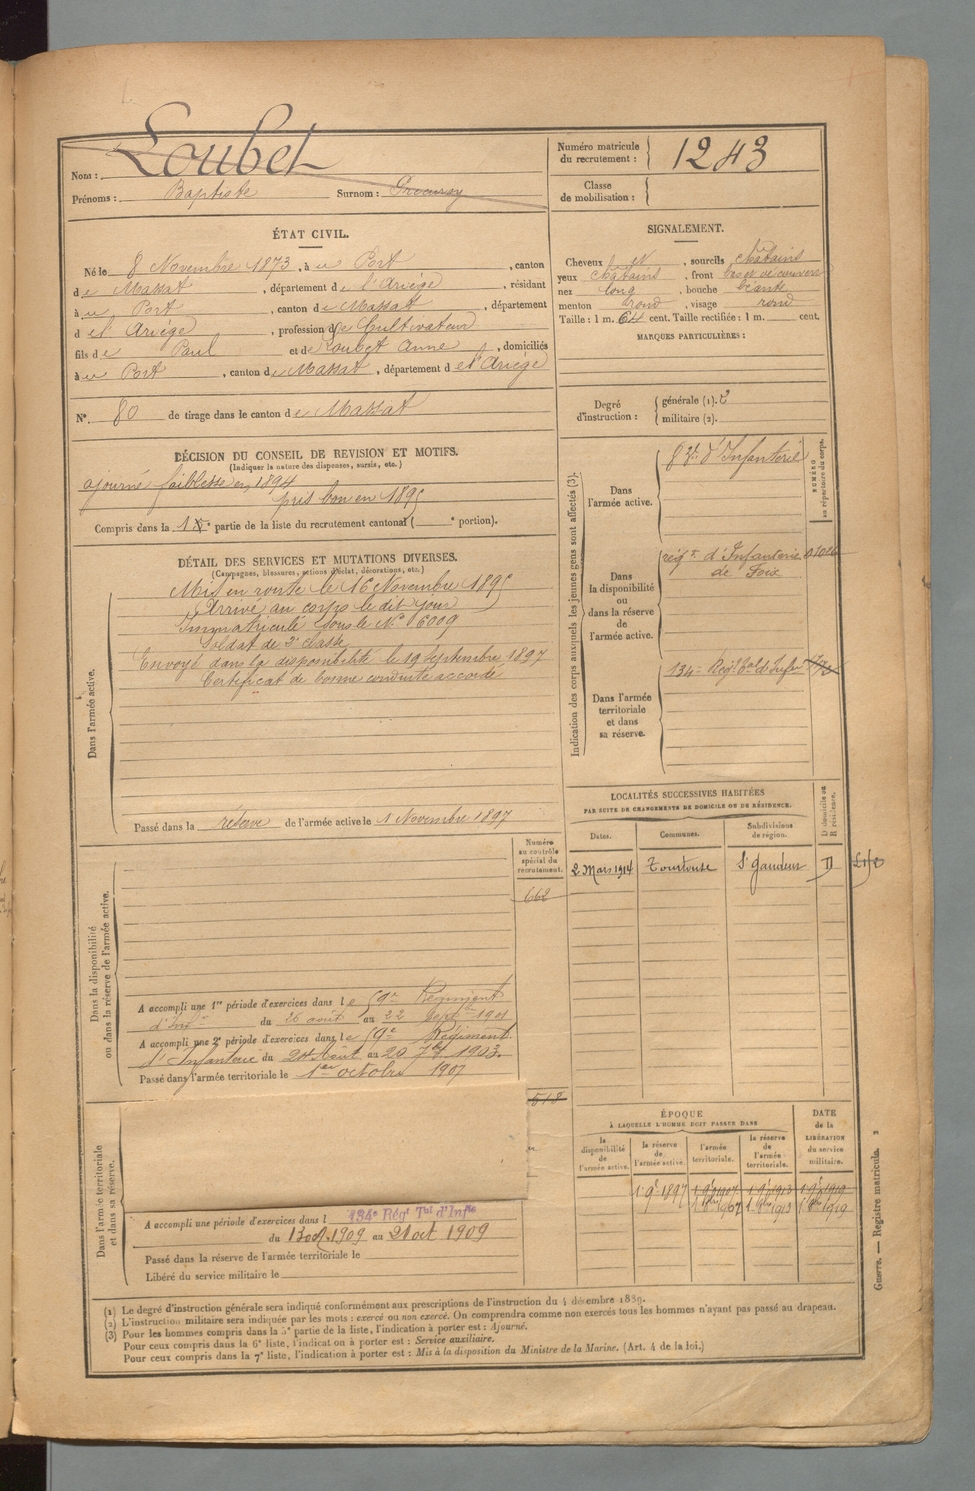 Nom : Loubet
Prénoms : Baptiste Surnom :
Numéro matricule du recrutement : 1243
Classe de mobilisation :
ÉTAT CIVIL.
Né le 8 Novembre 1873, à u Port, canton
de Massat, département de l'Ariège, résidant
à u Port, canton de Massat, département
d el Ariège, profession de Cultivateur
fils de Paul et de Loubet Anne, domiciliés
à u Port, canton de Massat, département d el'Ariège
N°. 80 de tirage dans le canton de Massat
SIGNALEMENT.
Cheveux et, sourcils châtains
yeux châtains, front
nez long, bouche béante
menton rond, visage rond
Taille : 1 m. 64 cent. Taille rectifiée : 1 m. cent.
MARQUES PARTICULIÈRES :
Degré d'instruction : générale (1). 2
militaire (2).
DÉCISION DU CONSEIL DE REVISION ET MOTIFS.
(Indiquer la nature des dispenses, sursis, etc.)
ajourné faiblesse en 1894
pris bon en 1895
Compris dans la 1e partie de la liste du recrutement cantonal ( e portion).
DÉTAIL DES SERVICES ET MUTATIONS DIVERSES.
(Campagnes, blessures, actions d'éclat, décorations, etc.)
Dans l'armée active.
Mis en route le 16 Novembre 1895
Arrivé au corps le dit jour
Immatriculé sous le N° 6009
Soldat de 2e classe
Envoyé dans la disponibilité le 19 Septembre 1897
Certificat de bonne conduite accordé
Passé dans la réserve de l'armée active le 1 Novembre 1897
Indication des corps auxquels les jeunes gens sont affectés (3).
NUMÉRO au répertoire du corps.
Dans l'armée active.
d'Infanterie
Dans la disponibilité ou dans la réserve de l'armée active.
régt d'Infanterie
de Foix
Dans l'armée territoriale et dans sa réserve.
134e Regt
LOCALITÉS SUCCESSIVES HABITÉES
PAR SUITE DE CHANGEMENTS DE DOMICILE OU DE RÉSIDENCE.
Dates. Communes. Subdivisions de région. D domicile ou R résidence.
2 Mars 1914 Tourtouse St Gaudens D
Numéro au contrôle spécial du recrutement.
662
Dans la disponibilité ou dans la réserve de l'armée active.
A accompli une 1re période d'exercices dans le 59e Régiment
d'Infie du 26 août au 22 Septbre 1901
A accompli une 2e période d'exercices dans le 59e Régiment
d'Infanterie du 24 Août au 20 7bre 1903.
Passé dans l'armée territoriale le 1er octobre 1907
518
Dans l'armée territoriale et dans sa réserve.
A accompli une période d'exercices dans l 134e Régt Tal d'Infie
du 13 oct. 1909 au 21 oct 1909
Passé dans la réserve de l'armée territoriale le
Libéré du service militaire le
ÉPOQUE
À LAQUELLE L'HOMME DOIT PASSER DANS
la disponibilité de l'armée active. la réserve de l'armée active. l'armée territoriale. la réserve de l'armée territoriale.
DATE de la LIBÉRATION du service militaire.
1 9e 1897 1 9e 1907 1 9e 1913 1 9e 1919
1 8bre 1907 1 8bre 1913 1 8bre 1919
(1) Le degré d'instruction générale sera indiqué conformément aux prescriptions de l'instruction du 4 décembre 1889.
(2) L'instruction militaire sera indiquée par les mots : exercé ou non exercé. On comprendra comme non exercés tous les hommes n'ayant pas passé au drapeau.
(3) Pour les hommes compris dans la 5e partie de la liste, l'indication à porter est : Ajourné.
Pour ceux compris dans la 6e liste, l'indication à porter est : Service auxiliaire.
Pour ceux compris dans la 7e liste, l'indication à porter est : Mis à la disposition du Ministre de la Marine. (Art. 4 de la loi.)
Guerre. — Registre matricule. 2